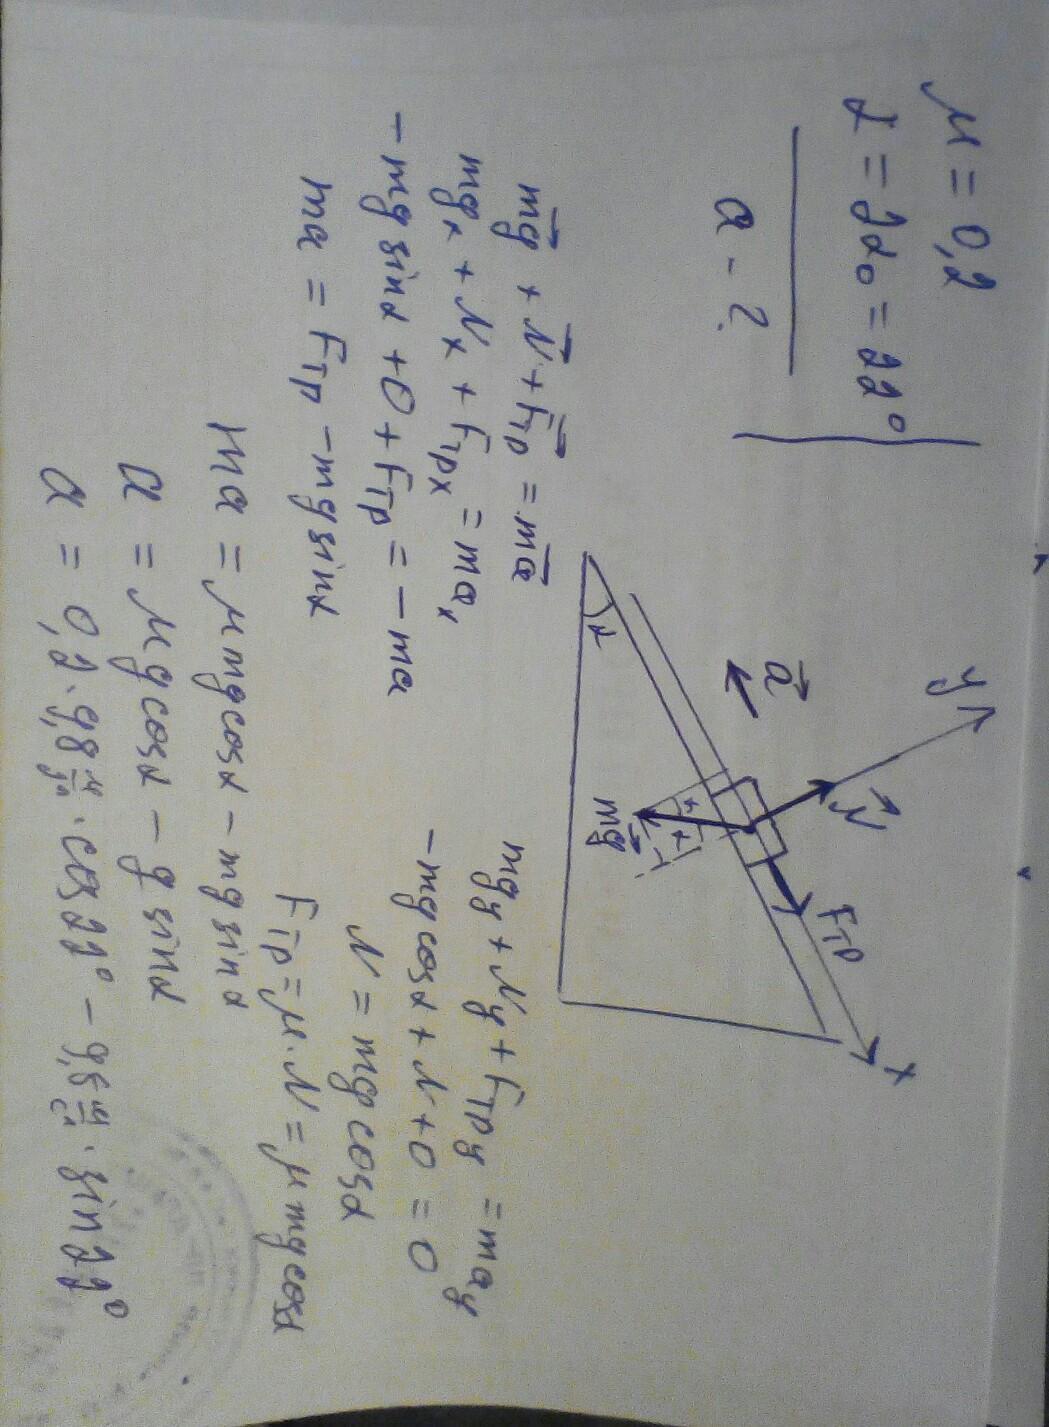 μ = 0,2
α = 2α₀ = 22°
a - ?
y
N⃗
Fтр
x
a⃗
mg⃗
α
α
mg⃗ + N⃗ + F⃗тр = ma⃗
mgx + Nx + Fтрx = max
-mg sinα + 0 + Fтр = -ma
ma = Fтр - mg sinα
mgy + Ny + Fтрy = may
-mg cosα + N + 0 = 0
N = mg cosα
Fтр = μ·N = μmg cosα
ma = μmg cosα - mg sinα
a = μg cosα - g sinα
a = 0,2 · 9,8 · cos22° - 9,8 · sin22°